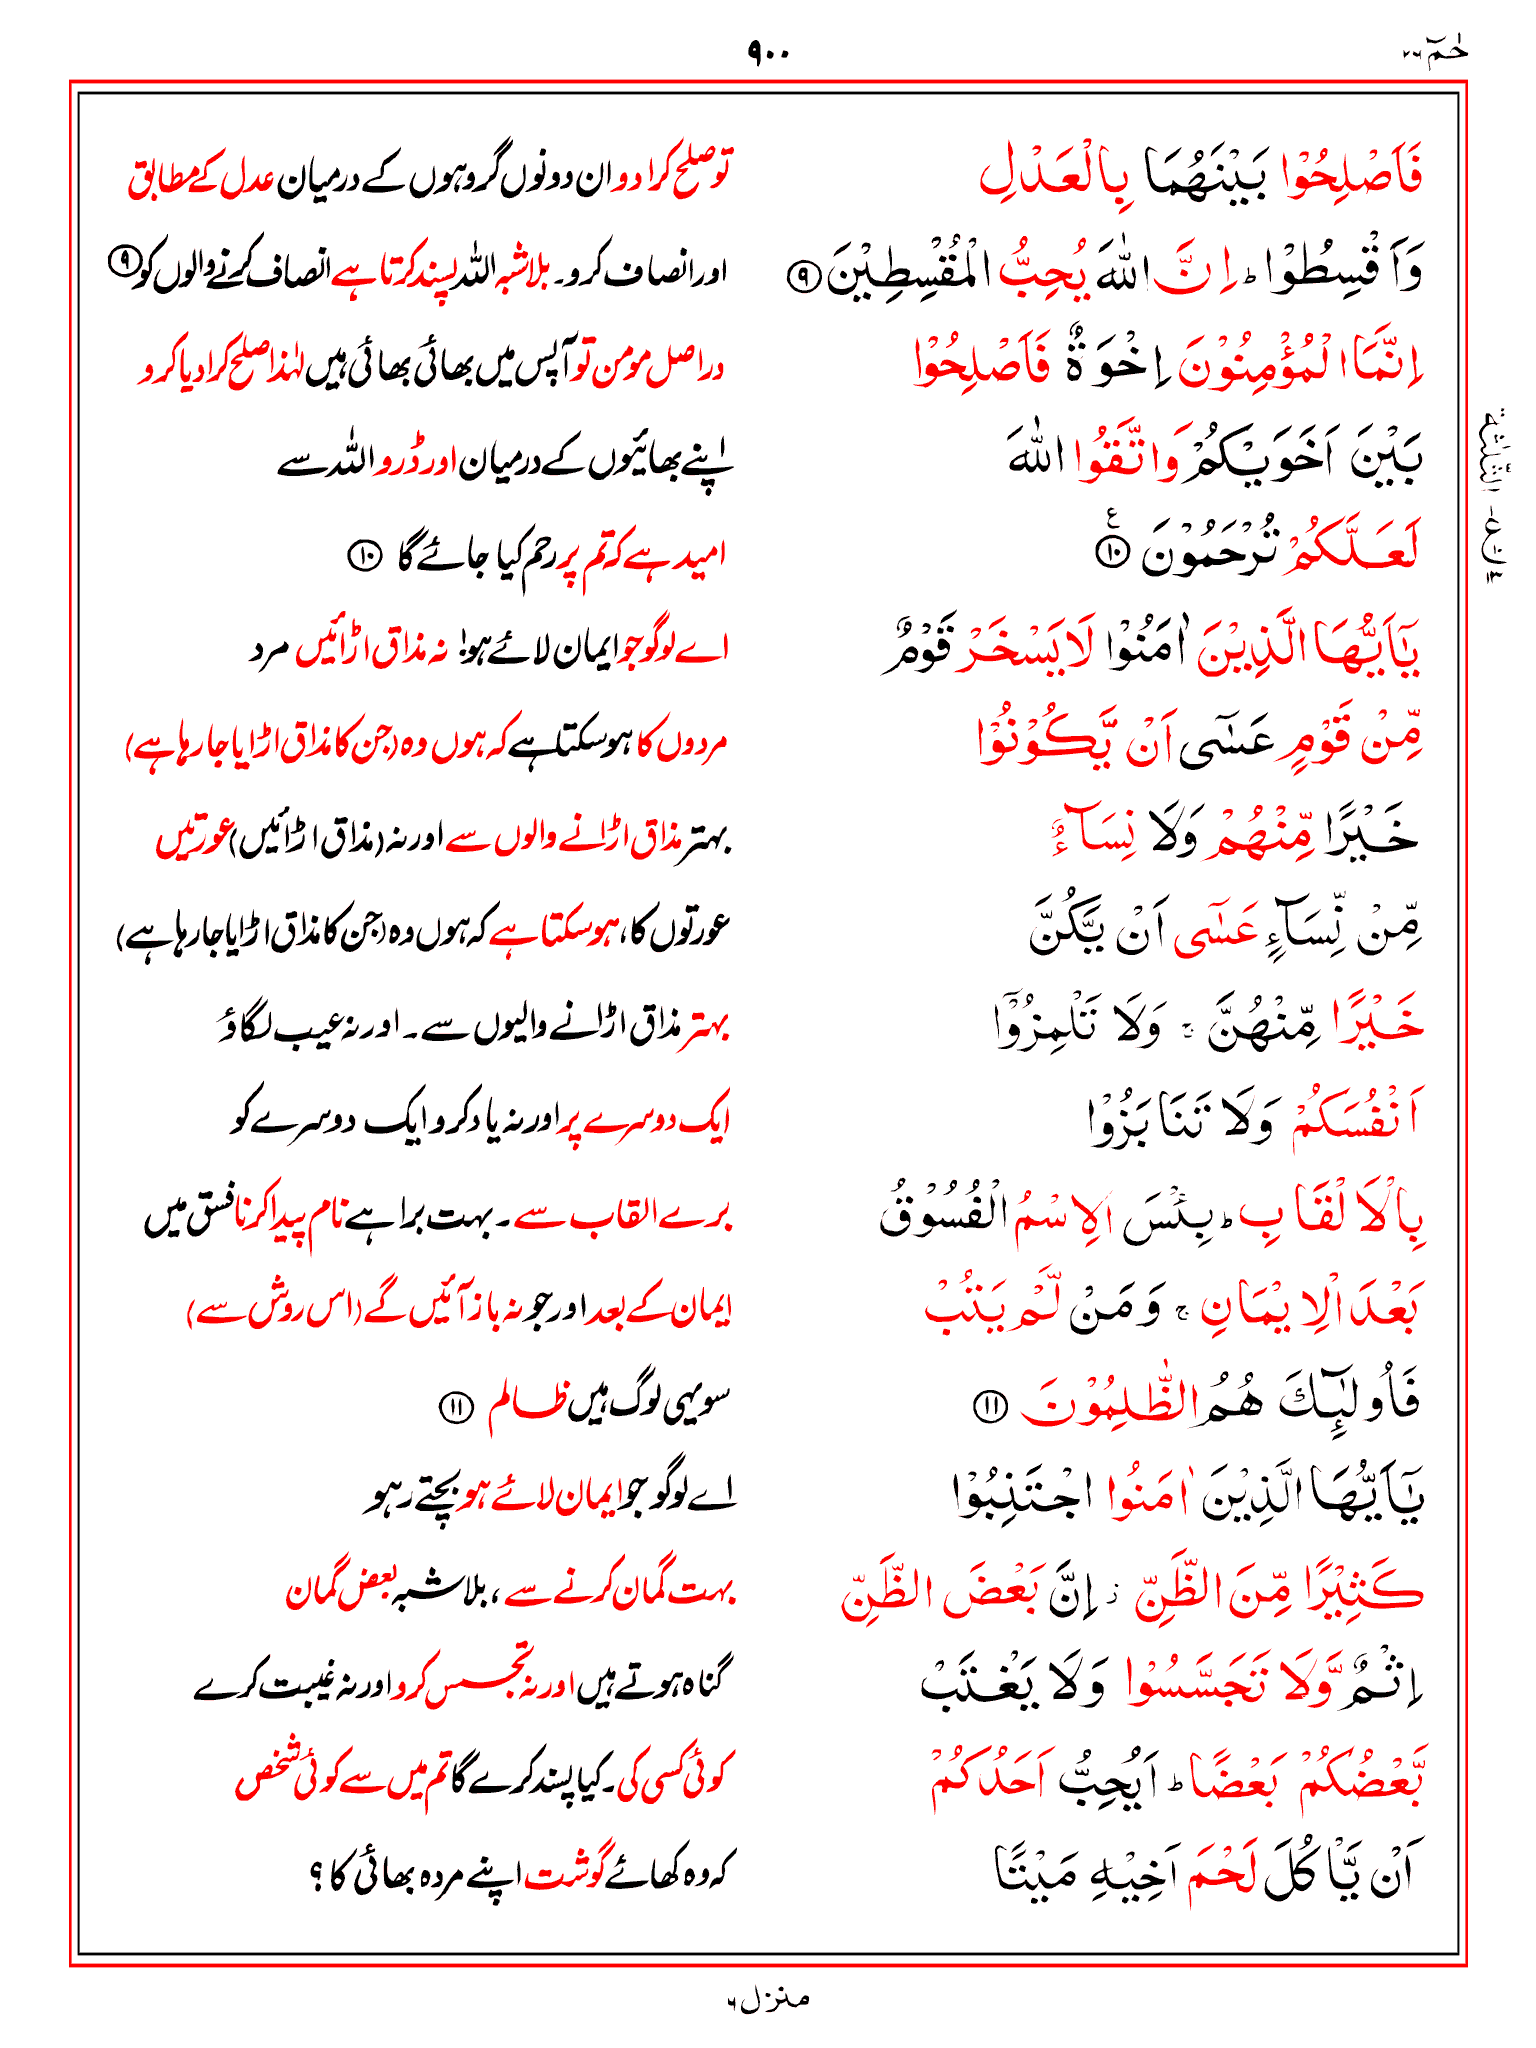 حٰمٓ ٢٦
٩٠٠
فَاَصْلِحُوْا بَيْنَهُمَا بِالْعَدْلِ
تو صلح کرا دو ان دونوں گروہوں کے درمیان عدل کے مطابق
وَاَقْسِطُوْا ؕ اِنَّ اللّٰهَ يُحِبُّ الْمُقْسِطِيْنَ ۹
اور انصاف کرو۔ بلاشبہ اللہ پسند کرتا ہے انصاف کرنے والوں کو ۹
اِنَّمَا الْمُؤْمِنُوْنَ اِخْوَةٌ فَاَصْلِحُوْا
دراصل مومن تو آپس میں بھائی بھائی ہیں لہٰذا صلح کرا دیا کرو
بَيْنَ اَخَوَيْكُمْ وَاتَّقُوا اللّٰهَ
اپنے بھائیوں کے درمیان اور ڈرو اللہ سے
لَعَلَّكُمْ تُرْحَمُوْنَ ۱۰ ع
امید ہے کہ تم پر رحم کیا جائے گا ۱۰
يٰۤاَيُّهَا الَّذِيْنَ اٰمَنُوْا لَا يَسْخَرْ قَوْمٌ
اے لوگو جو ایمان لائے ہو! نہ مذاق اڑائیں مرد
مِّنْ قَوْمٍ عَسٰٓى اَنْ يَّكُوْنُوْا
مردوں کا ہو سکتا ہے کہ ہوں وہ (جن کا مذاق اڑایا جا رہا ہے)
خَيْرًا مِّنْهُمْ وَلَا نِسَآءٌ
بہتر مذاق اڑانے والوں سے اور نہ (مذاق اڑائیں) عورتیں
مِّنْ نِّسَآءٍ عَسٰٓى اَنْ يَّكُنَّ
عورتوں کا، ہو سکتا ہے کہ ہوں وہ (جن کا مذاق اڑایا جا رہا ہے)
خَيْرًا مِّنْهُنَّ ۚ وَلَا تَلْمِزُوْۤا
بہتر مذاق اڑانے والیوں سے۔ اور نہ عیب لگاؤ
اَنْفُسَكُمْ وَلَا تَنَابَزُوْا
ایک دوسرے پر اور نہ یاد کرو ایک دوسرے کو
بِالْاَلْقَابِ ؕ بِئْسَ الِاسْمُ الْفُسُوْقُ
برے القاب سے۔ بہت برا ہے نام پیدا کرنا فسق میں
بَعْدَ الْاِيْمَانِ ۚ وَمَنْ لَّمْ يَتُبْ
ایمان کے بعد اور جو نہ باز آئیں گے (اس روش سے)
فَاُولٰٓئِكَ هُمُ الظّٰلِمُوْنَ ۱۱
سو یہی لوگ ہیں ظالم ۱۱
يٰۤاَيُّهَا الَّذِيْنَ اٰمَنُوا اجْتَنِبُوْا
اے لوگو جو ایمان لائے ہو بچتے رہو
كَثِيْرًا مِّنَ الظَّنِّ ز اِنَّ بَعْضَ الظَّنِّ
بہت گمان کرنے سے، بلاشبہ بعض گمان
اِثْمٌ وَّلَا تَجَسَّسُوْا وَلَا يَغْتَبْ
گناہ ہوتے ہیں اور نہ تجسس کرو اور نہ غیبت کرے
بَّعْضُكُمْ بَعْضًا ؕ اَيُحِبُّ اَحَدُكُمْ
کوئی کسی کی۔ کیا پسند کرے گا تم میں سے کوئی شخص
اَنْ يَّاْكُلَ لَحْمَ اَخِيْهِ مَيْتًا
کہ وہ کھائے گوشت اپنے مردہ بھائی کا؟
منزل ٦